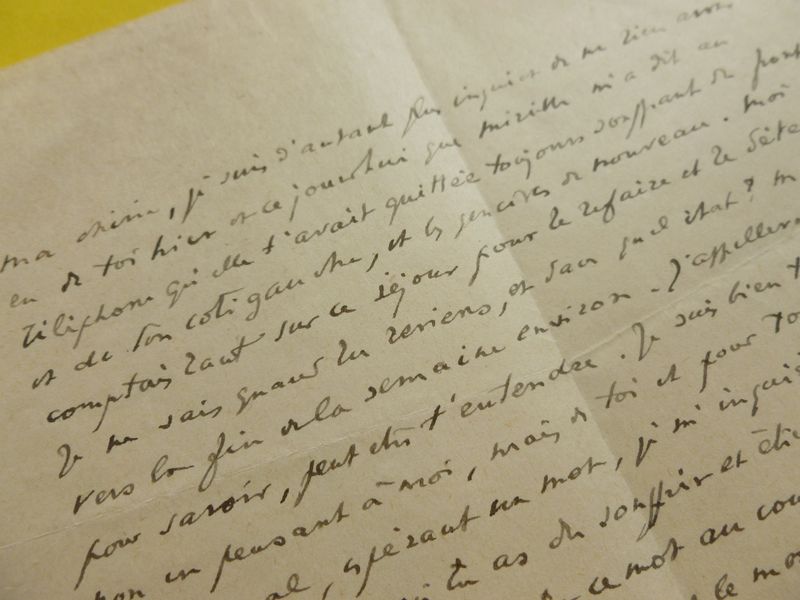 ma chérie, je suis d'autant plus inquiet de ne rien avoir
eu de toi hier et ce jourd'hui que mireille m'a dit au
téléphone qu'elle t'avait quittée toujours souffrant de
et de ton coté gauche, et les gencives de nouveau. moi
comptais tant sur ce séjour pour te refaire et te
Je ne sais quand tu reviens, et dans quel état?
vers la fin de la semaine environ. J'appellerai
pour savoir, peut etre t'entendre. Je suis bien
non en pensant à moi, mais de toi et pour
espérant un mot, je m'inquiè
tu as du souffrir et
ce mot au cou
le mo